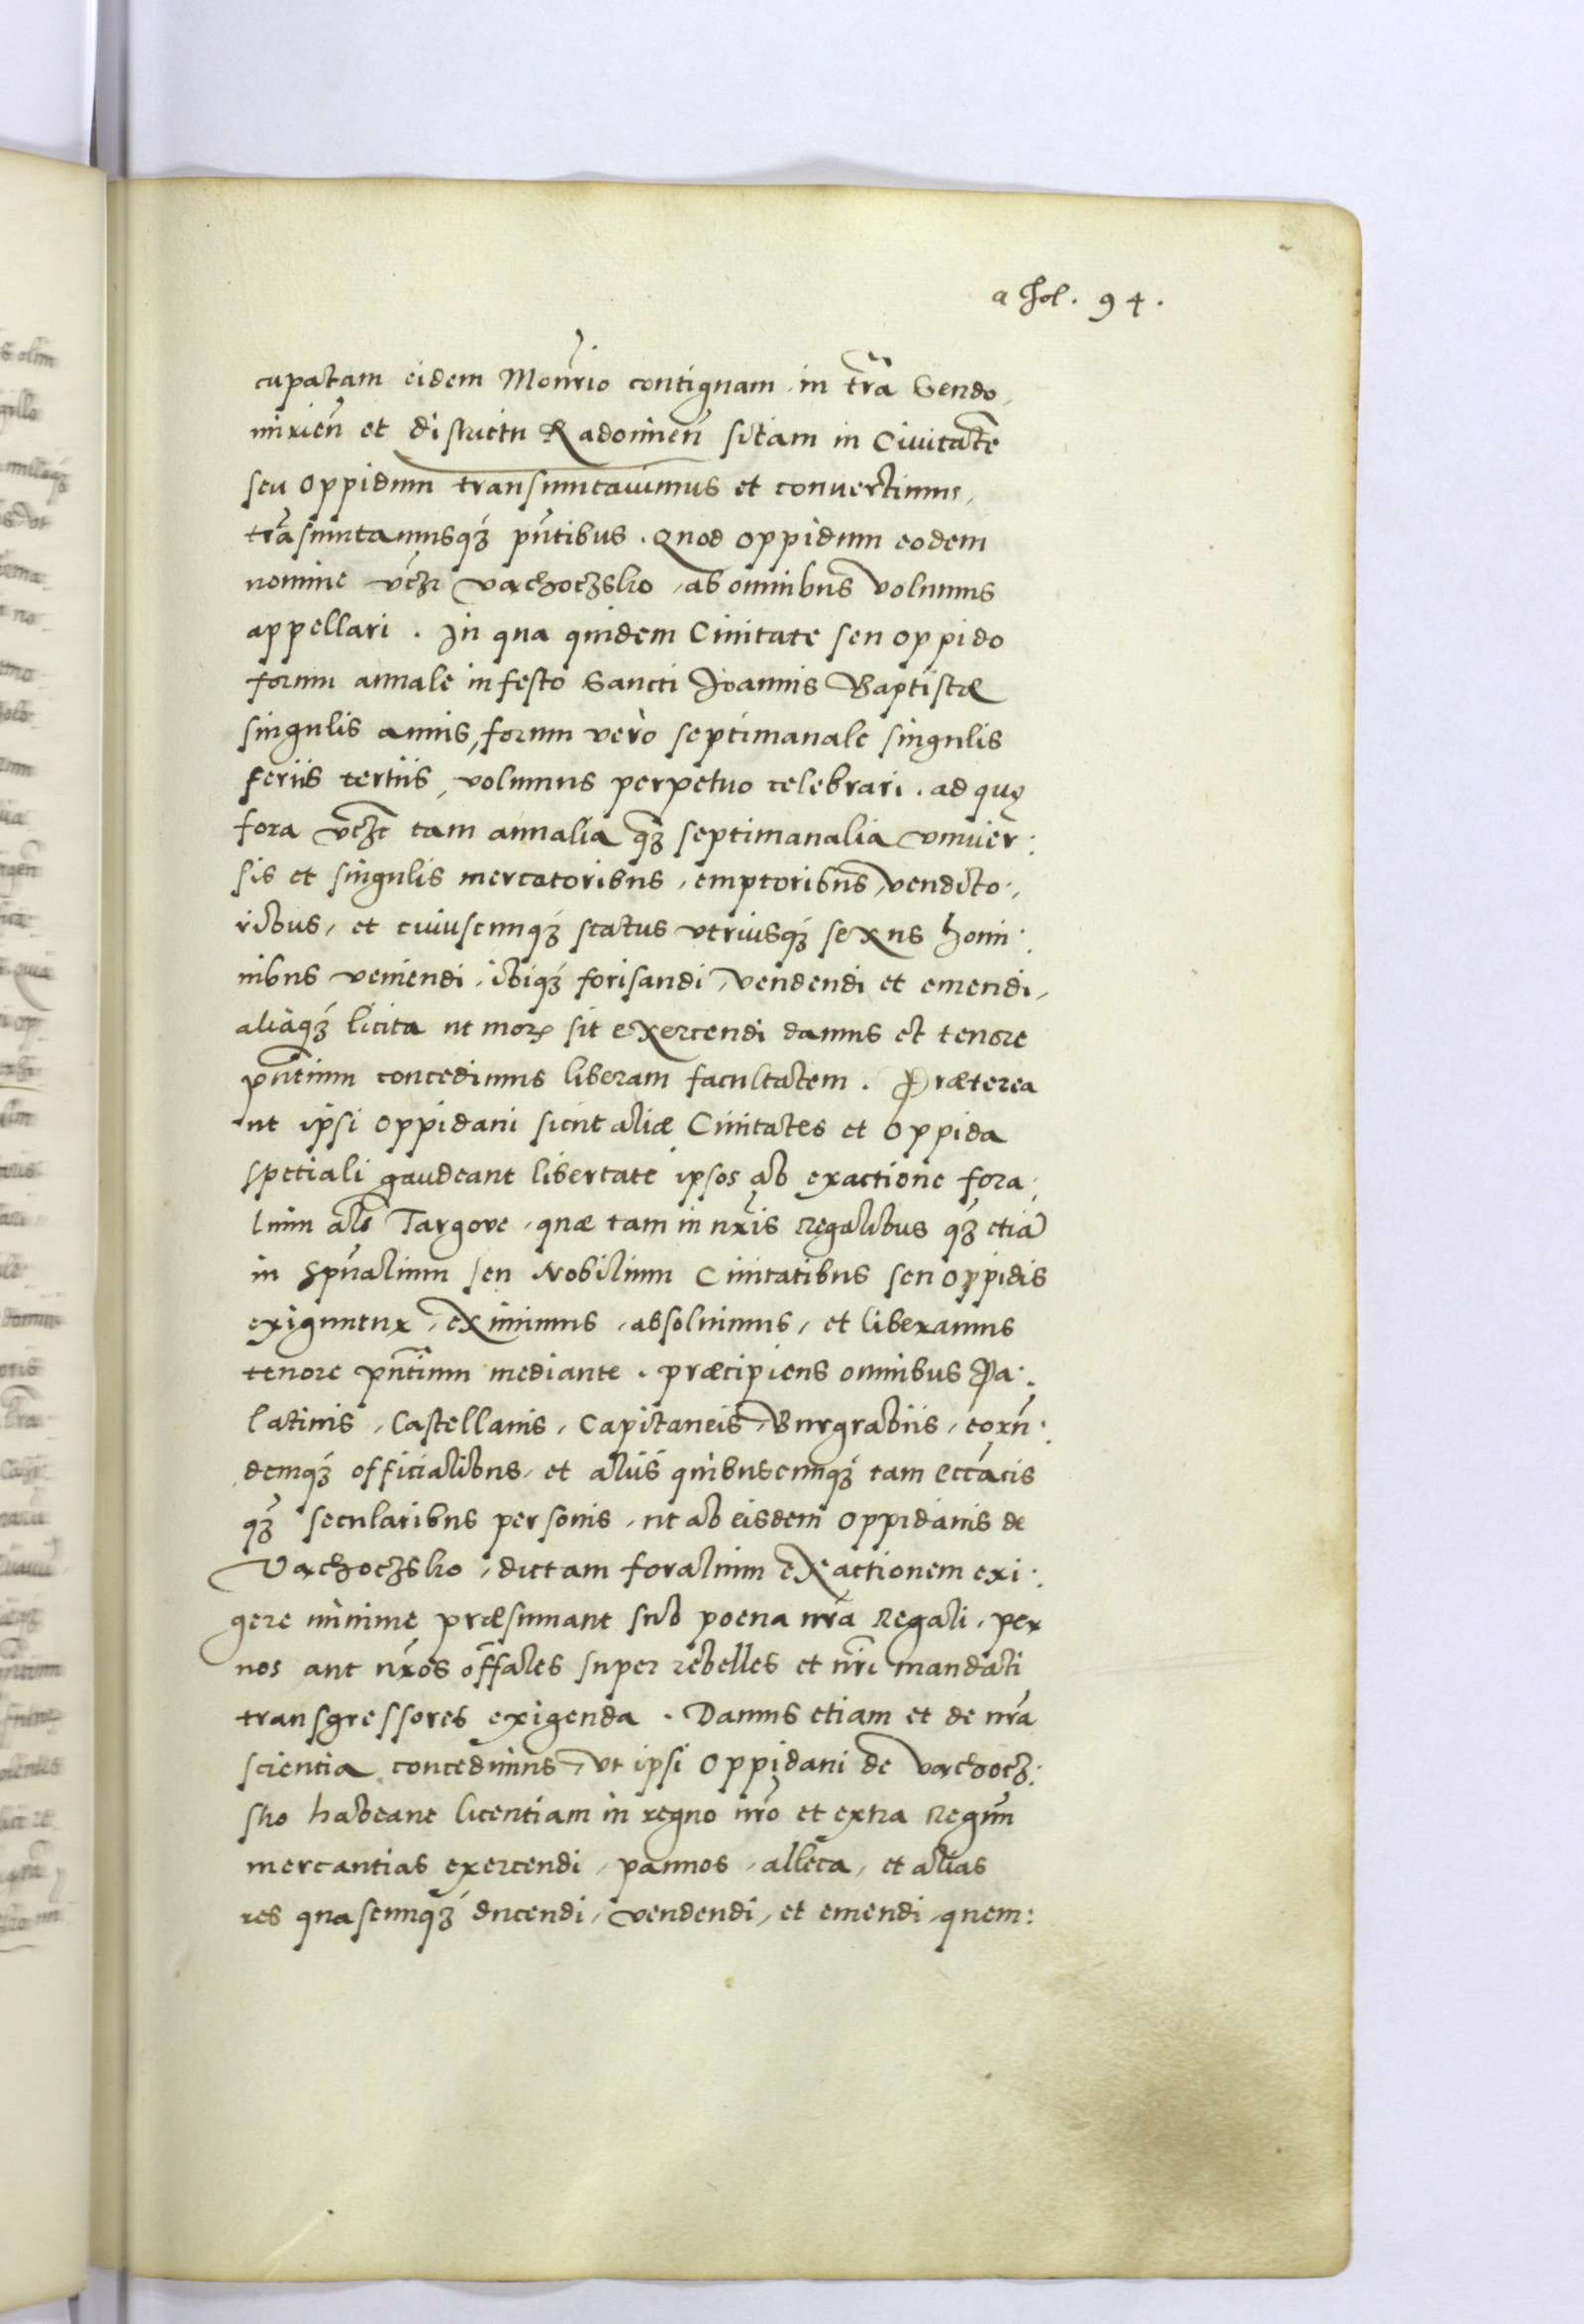 a fol. 94.
cupatam eidem Mon̄rio contiguam in tr̄a Sendo,
mirień et districtu Radomień sitam in Civitatē
seu oppidum transmutavimus et convertimus,
trāsmutamusq3 pn̄tibus. Quod oppidum eodem
nomine vc̄z Vachoczsko, ab omnibus volumus
appellari. In qua quidem Civitate seu oppido
forum annale in festo Sancti Joannis Baptistæ
singulis annis, forum verò septimanale singulis
feriis tertiis, volumus perpetuo celebrari. ad quę
fora vc̄zt tam annalia q̄3 septimanalia vniver:
sis et singulis mercatoribus, emptoribus, vendito:,
ribus, et cuiuscunq3 status vtriusq3 sexus homi:
nibus veniendi, ibiq3 forisandi, vendendi et emendi,
aliaq3 licita ut moris sit exercendi damus et tenore
pn̄tium concedimus liberam facultatem. Præterea
ut ipsi oppidani sicut aliæ Civitates et oppida
speciali gaudeant libertate ipsos ab exactione fora:
lium als̄ Targove, quæ tam in nr̄is Regalibus q̄3 etiā
in Spūalium seu Nobilium Civitatibus seu oppidis
exiguntur, eximimus, absolvimus, et liberamus
tenore pn̄tium mediante. præcipiens omnibus Pa:
latinis, Castellanis, Capitaneis, Burgrabiis, eorū:
demq3 officialibus, et aliis quibuscunq3 tam ecc̄aticis
q̄3 secularibus personis, ut ab eisdem oppidanis de
Vachoczsko, dictam foralium exactionem exi:
gere minime præsumant sub poena nr̄a Regali, per
nos aut nr̄os off̄ales super rebelles et nr̄i mandati
transgressores exigenda. Damus etiam et de nr̄a
scientia concedimus, vt ipsi oppidani de Vachocz:
sko habeant licentiam in regno nr̄o et extra Regnū
mercantias exercendi, pannos, alleca, et alias
res quascunq3 ducendi, vendendi, et emendi, quem: